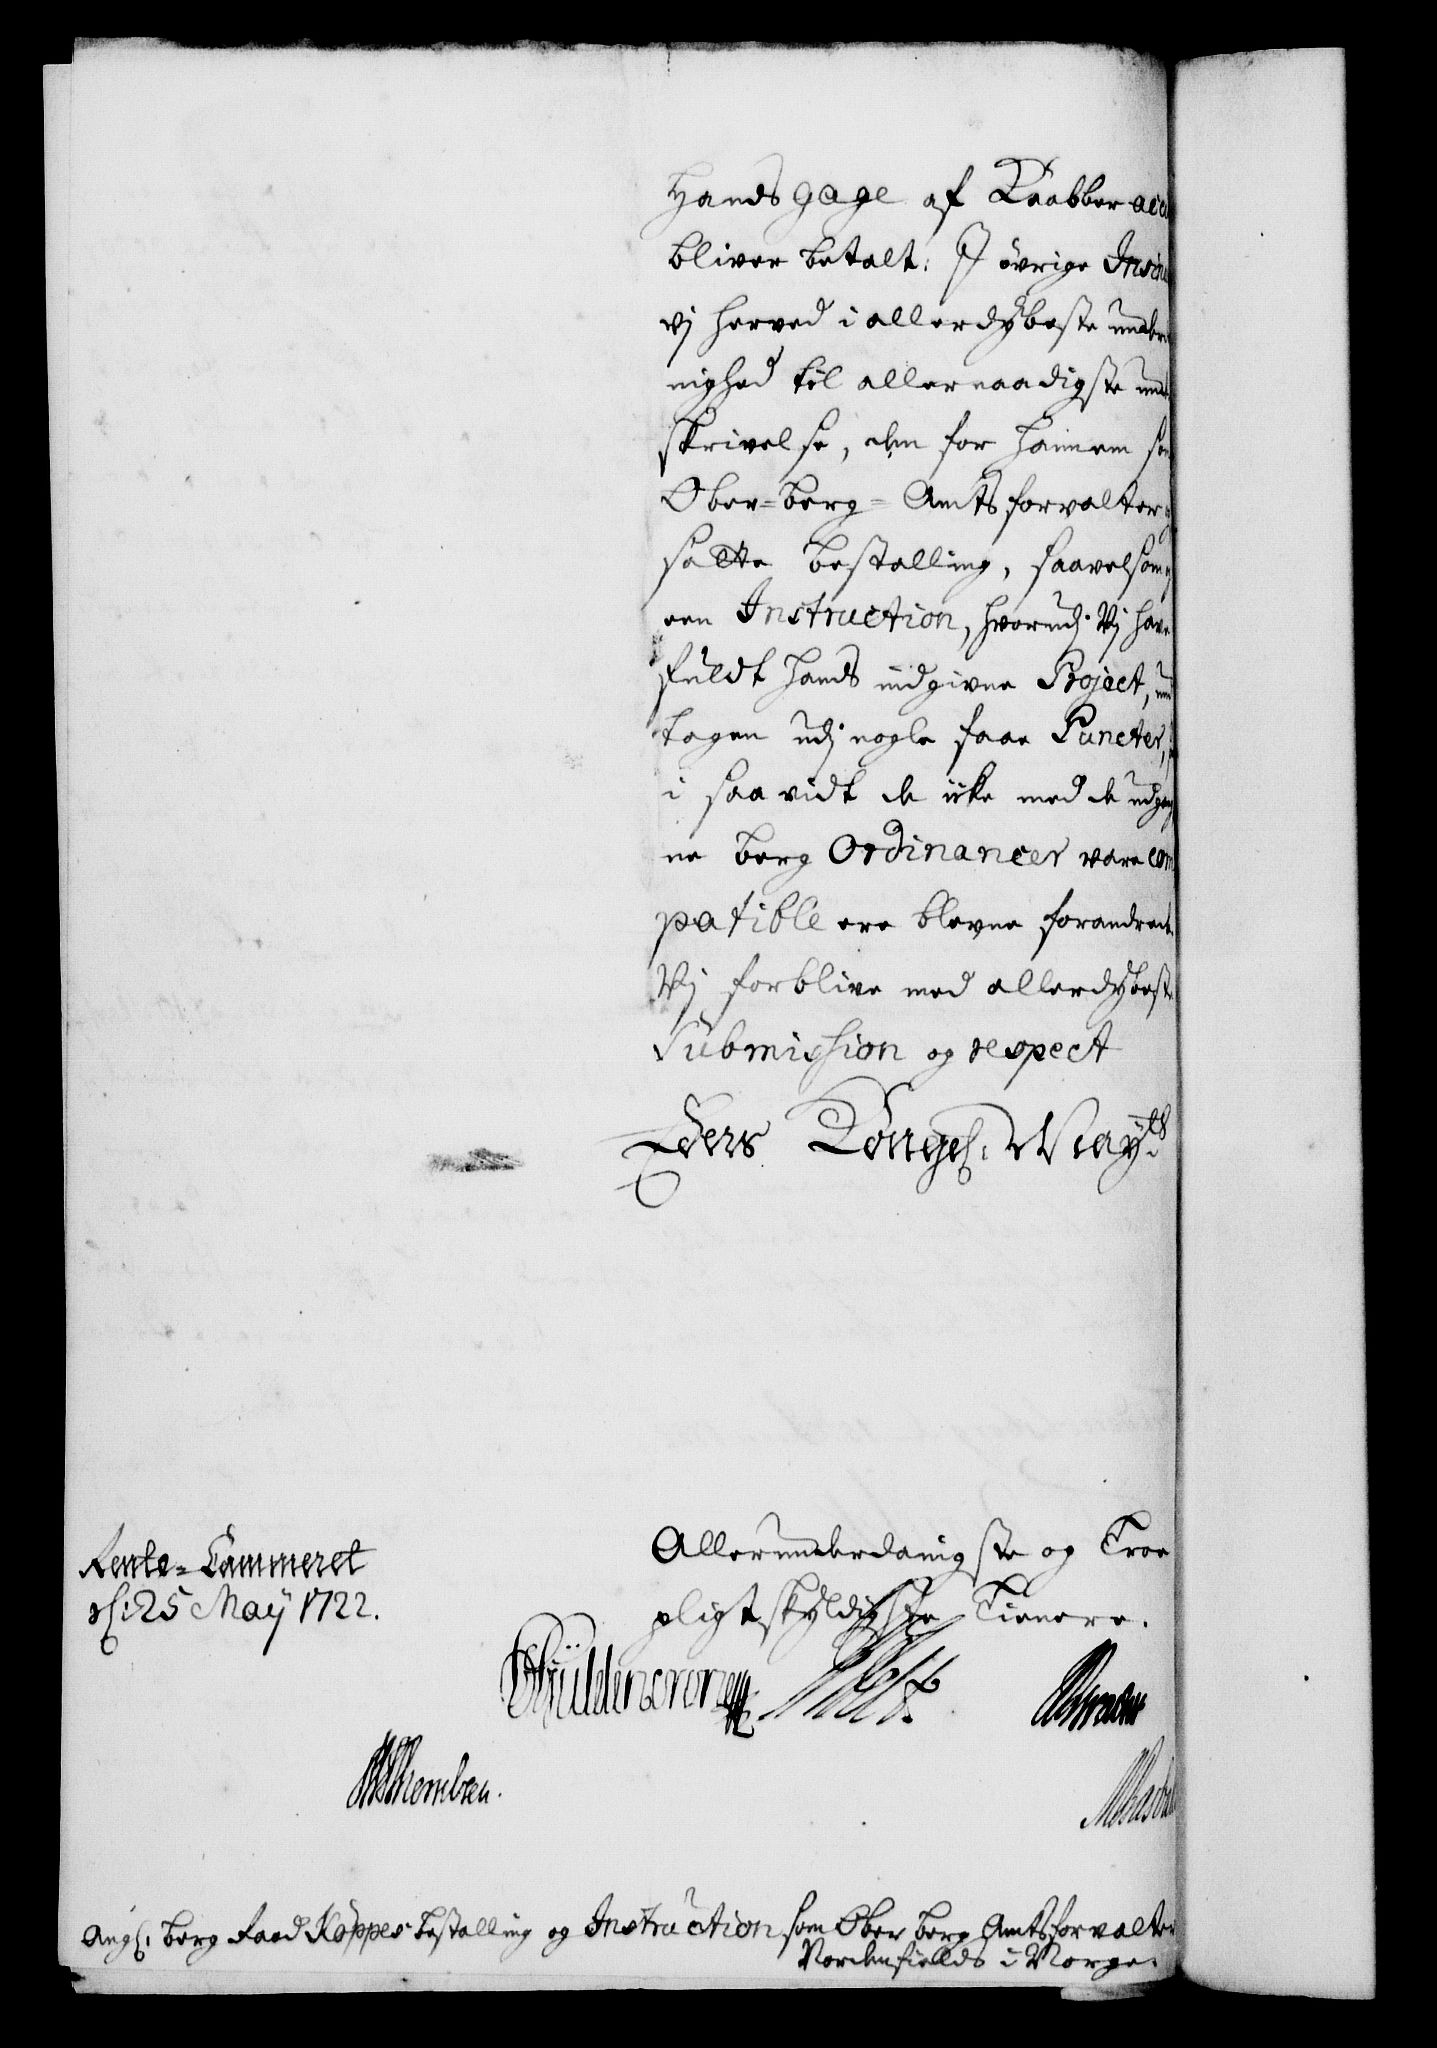 Hands gage af Kaabber
bliver betalt. I övrige
vj herved i allerdybeste under
nighed til allernaadigste und
skrivelse, den for hannem som
Ober=berg=Amtsforvalter
satte bestalling, saavelsom
een Instruction, hvorudj Vj have
fuldt hands indgivne Project, und
tagen udj nogle faae Puncter,
i saa vidt de icke med de udgang
ne berg Ordinancer vare com
patible ere blevne forandrede
Vj forblive med allerdybeste
Submission og respect
Eders Kongel. Mayts
Rente=Cammeret
d: 25 Maÿ 1722.
Allerunderdanigste og Troe
pligtskyldigste Tienere.
Gyldencrone
Angl. berg Raad Köppes bestalling og Instruction som Ober berg Amtsforvalter
Nordenfields i Norge.